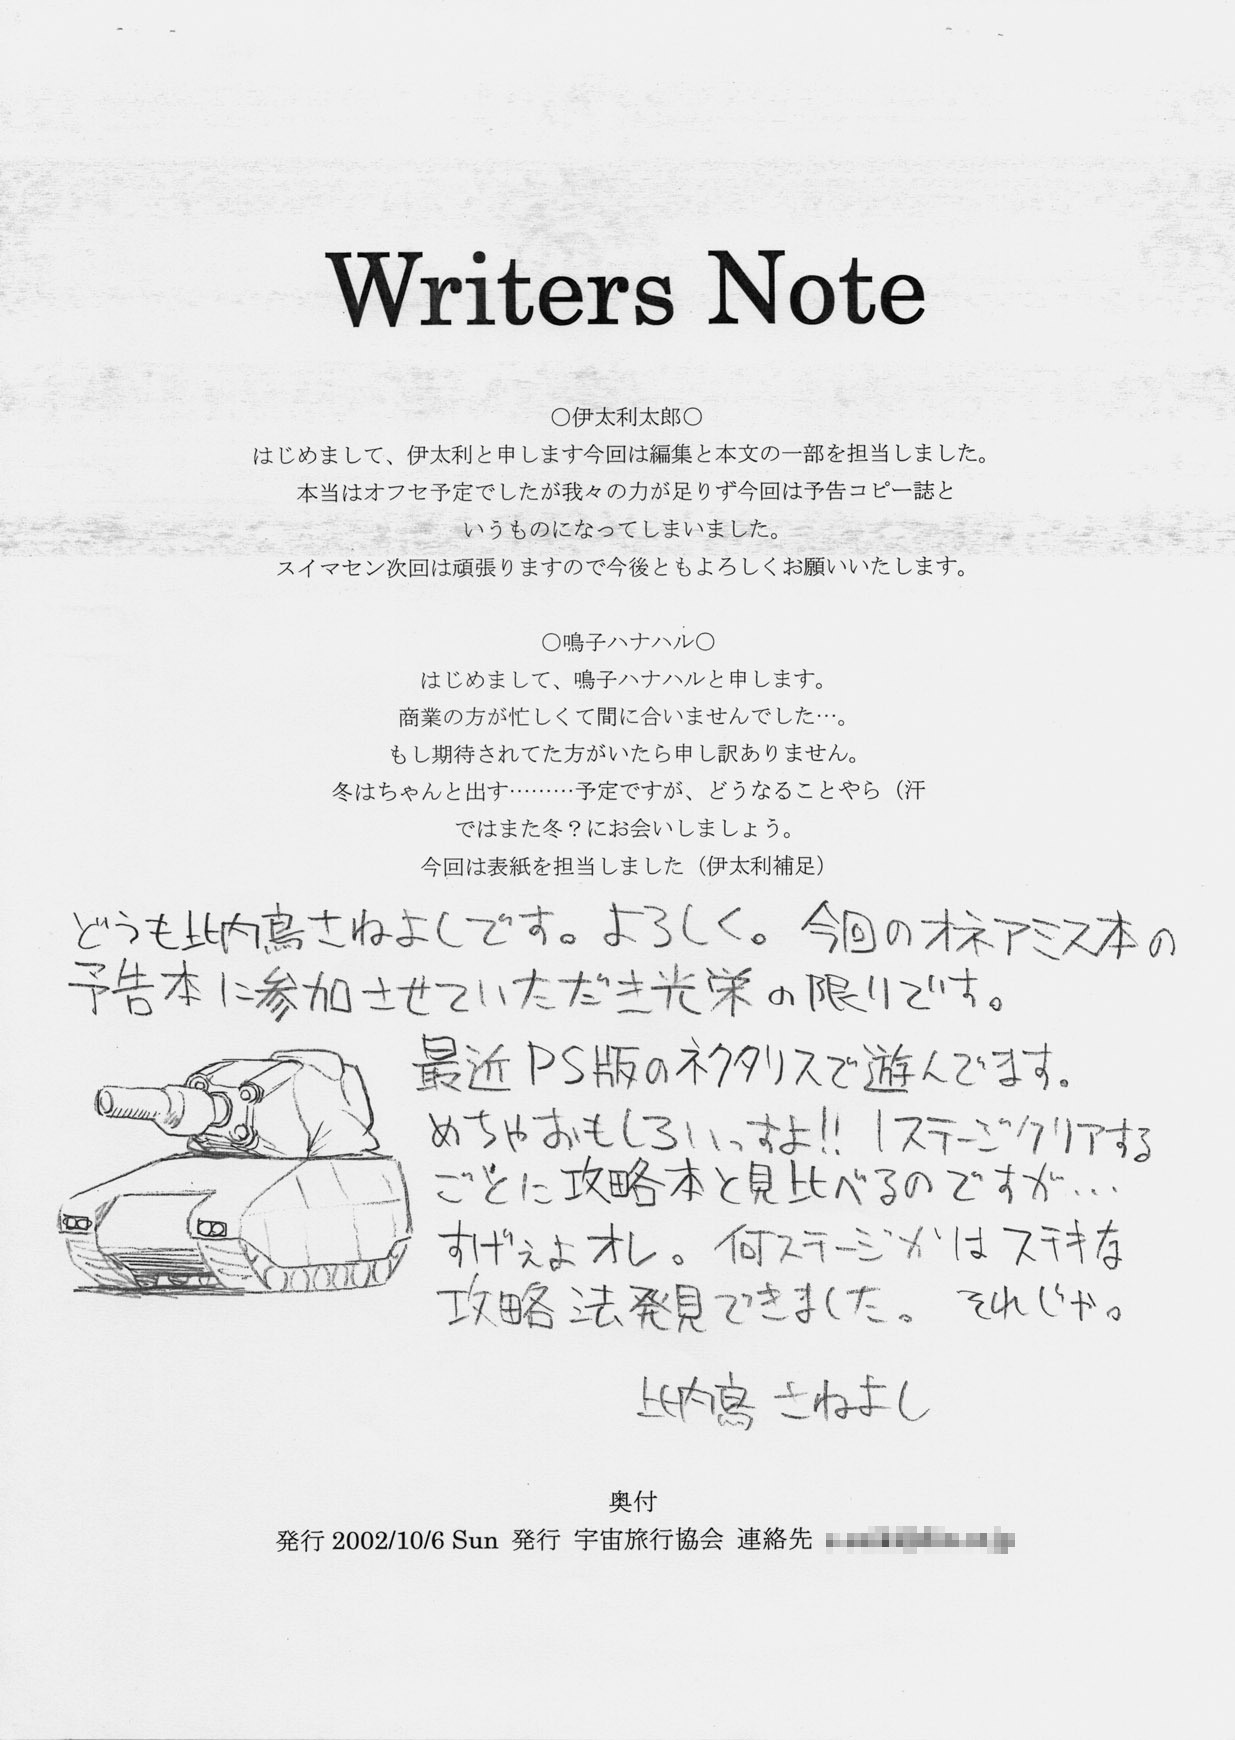 Writers Note
○伊太利太郎○
はじめまして、伊太利と申します今回は編集と本文の一部を担当しました。
本当はオフセ予定でしたが我々の力が足りず今回は予告コピー誌と
いうものになってしまいました。
スイマセン次回は頑張りますので今後ともよろしくお願いいたします。
○鳴子ハナハル○
はじめまして、鳴子ハナハルと申します。
商業の方が忙しくて間に合いませんでした…。
もし期待されてた方がいたら申し訳ありません。
冬はちゃんと出す………予定ですが、どうなることやら（汗
ではまた冬？にお会いしましょう。
今回は表紙を担当しました（伊太利補足）
どうも比内鳥さねよしです。よろしく。今回のオネアミス本の
予告本に参加させていただき光栄の限りです。
最近PS版のネクタリスで遊んでます。
めちゃおもしろいっすよ!! 1ステージクリアする
ごとに攻略本と見比べるのですが…
すげぇよオレ。何ステージかはステキな
攻略法発見できました。それじゃ。
比内鳥 さねよし
奥付
発行 2002/10/6 Sun 発行 宇宙旅行協会 連絡先